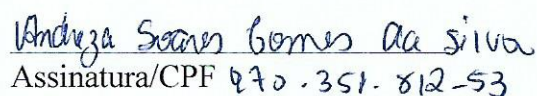 Andreza Soares Gomes da silva
Assinatura/CPF 970.351.812-53